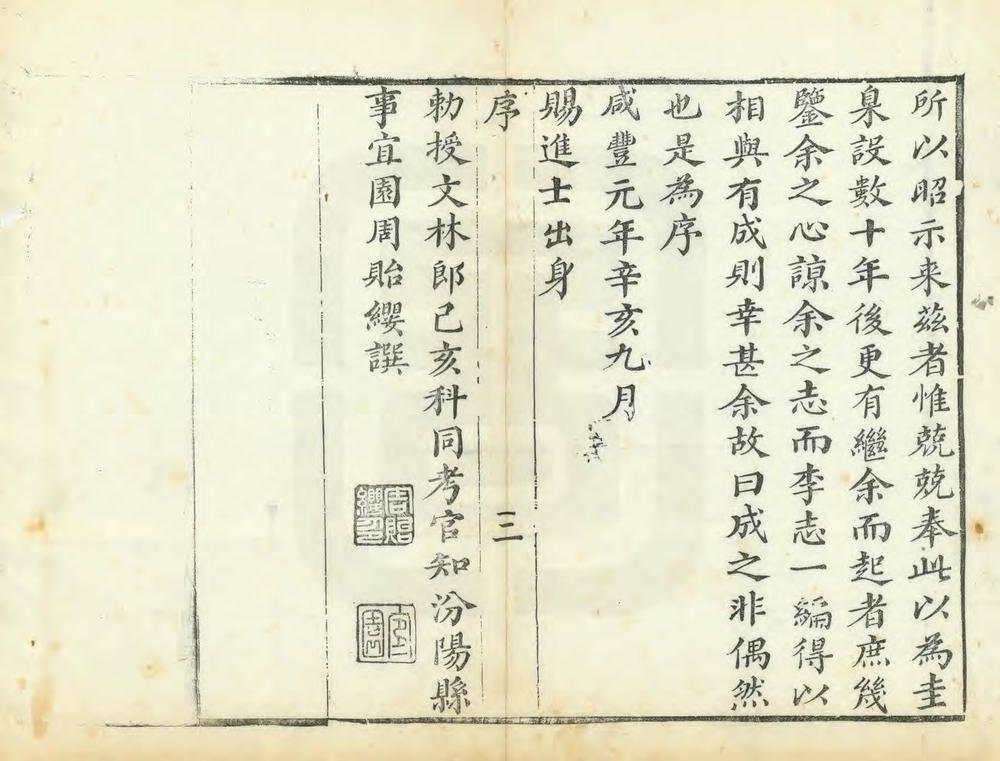 所以昭示来茲者惟兢兢奉此以為圭
臬設數十年後更有繼余而起者庶幾
鑒余之心諒余之志而李志一編得以
相與有成則幸甚余故曰成之非偶然
也是為序
咸豐元年辛亥九月
賜進士出身
序
三
勅授文林郎己亥科同考官知汾陽縣
事宜園周貽纓譔
周貽
纓印